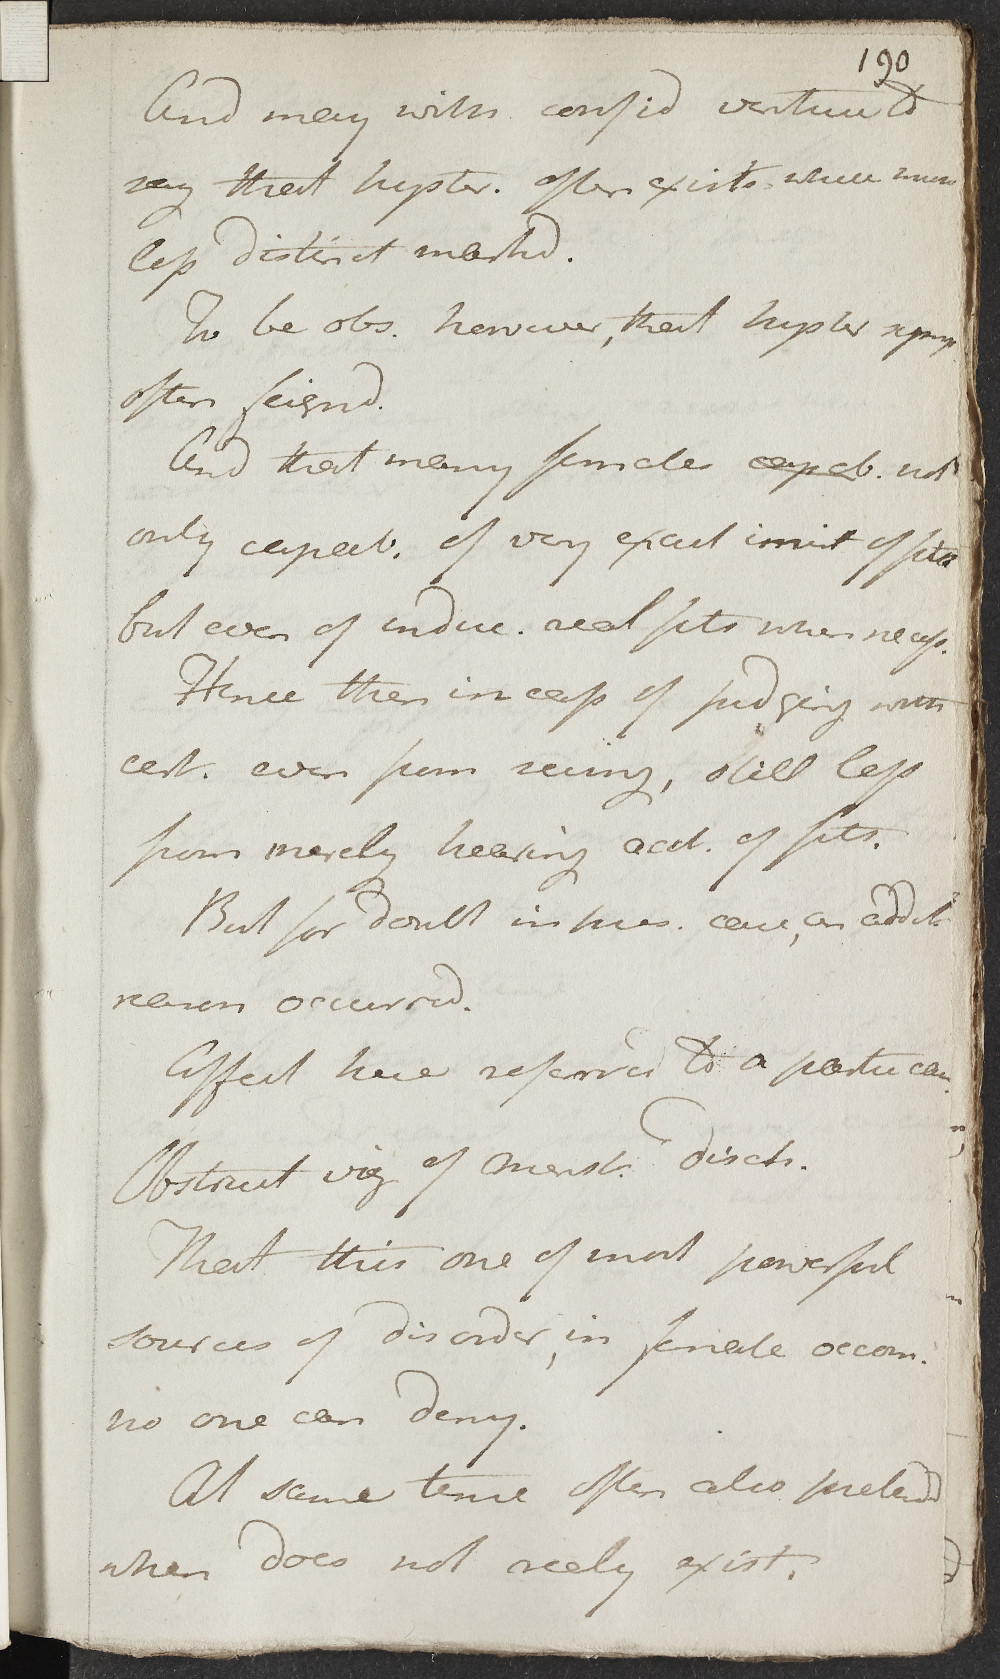 190
And may with confid venture to
say that hyster. often exists where more
less distinct markd.
To be obs. however, that hyster symp
often feignd.
And that many females capab. not
only capab. of very exact imit of fits
but even of induc. real fits when necess.
Hence then in cap of judging with
cert. even from seeing, still less
from merely hearing acct. of fits.
But for doubt in pres. case, an addit
reason occurred.
Affect here referred to a particu cau.
Obstruct viz of menst. disch.
That this one of most powerful
sources of disorder, in female oecon.
no one can deny.
At same time often also pretendd
when does not realy exist.